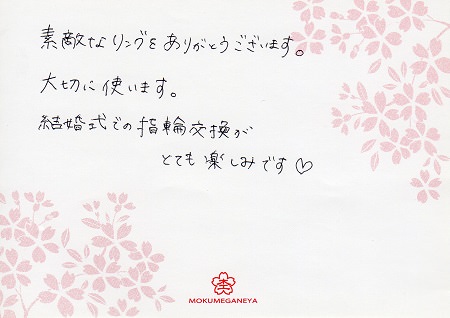 素敵なリングをありがとうございます。
大切に使います。
結婚式での指輪交換が
とても楽しみです♡
MOKUMEGANEYA